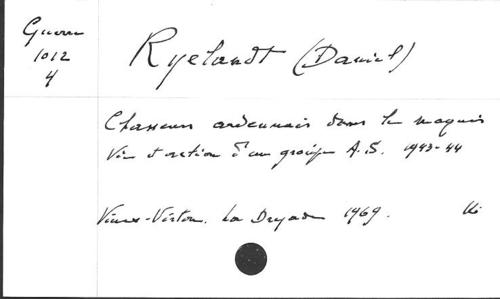 Guerre
1012
4
Ryelandt (Daniel)
Chasseurs ardennais dans le maquis
Vie et action d'un groupe A.S. 1943-44
Vieux-Virton. La Dryade 1969.